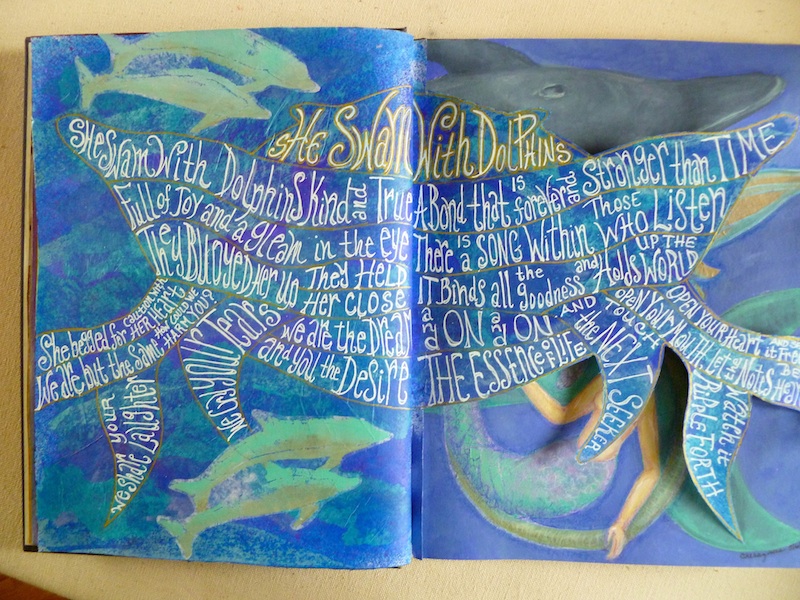 SHE SWAM WITH DOLPHINS
SHE SWAM WITH DOLPHINS KIND and TRUE
Full of JOY and a gleam in the eye
They BUOYED HER UP They HELD HER CLOSE
We are the DREAM and you the DESIRE
She begged for caution with HER HEART
We are but the same HOW COULD WE YOU?
We cry YOUR Tears
We share YOUR Laughter
A BOND that IS forever and Stronger than TIME
There IS a SONG within THOSE WHO Listen
IT Binds all the goodness and HOLDS UP THE WORLD
and ON and ON AND
THE ESSENCE of LIFE
TOUCH the NEXT Seeker
OPEN YOUR HEART it Free
OPEN YOUR MOUTH Let go NOTES Be
Watch it RIPPLE FORTH